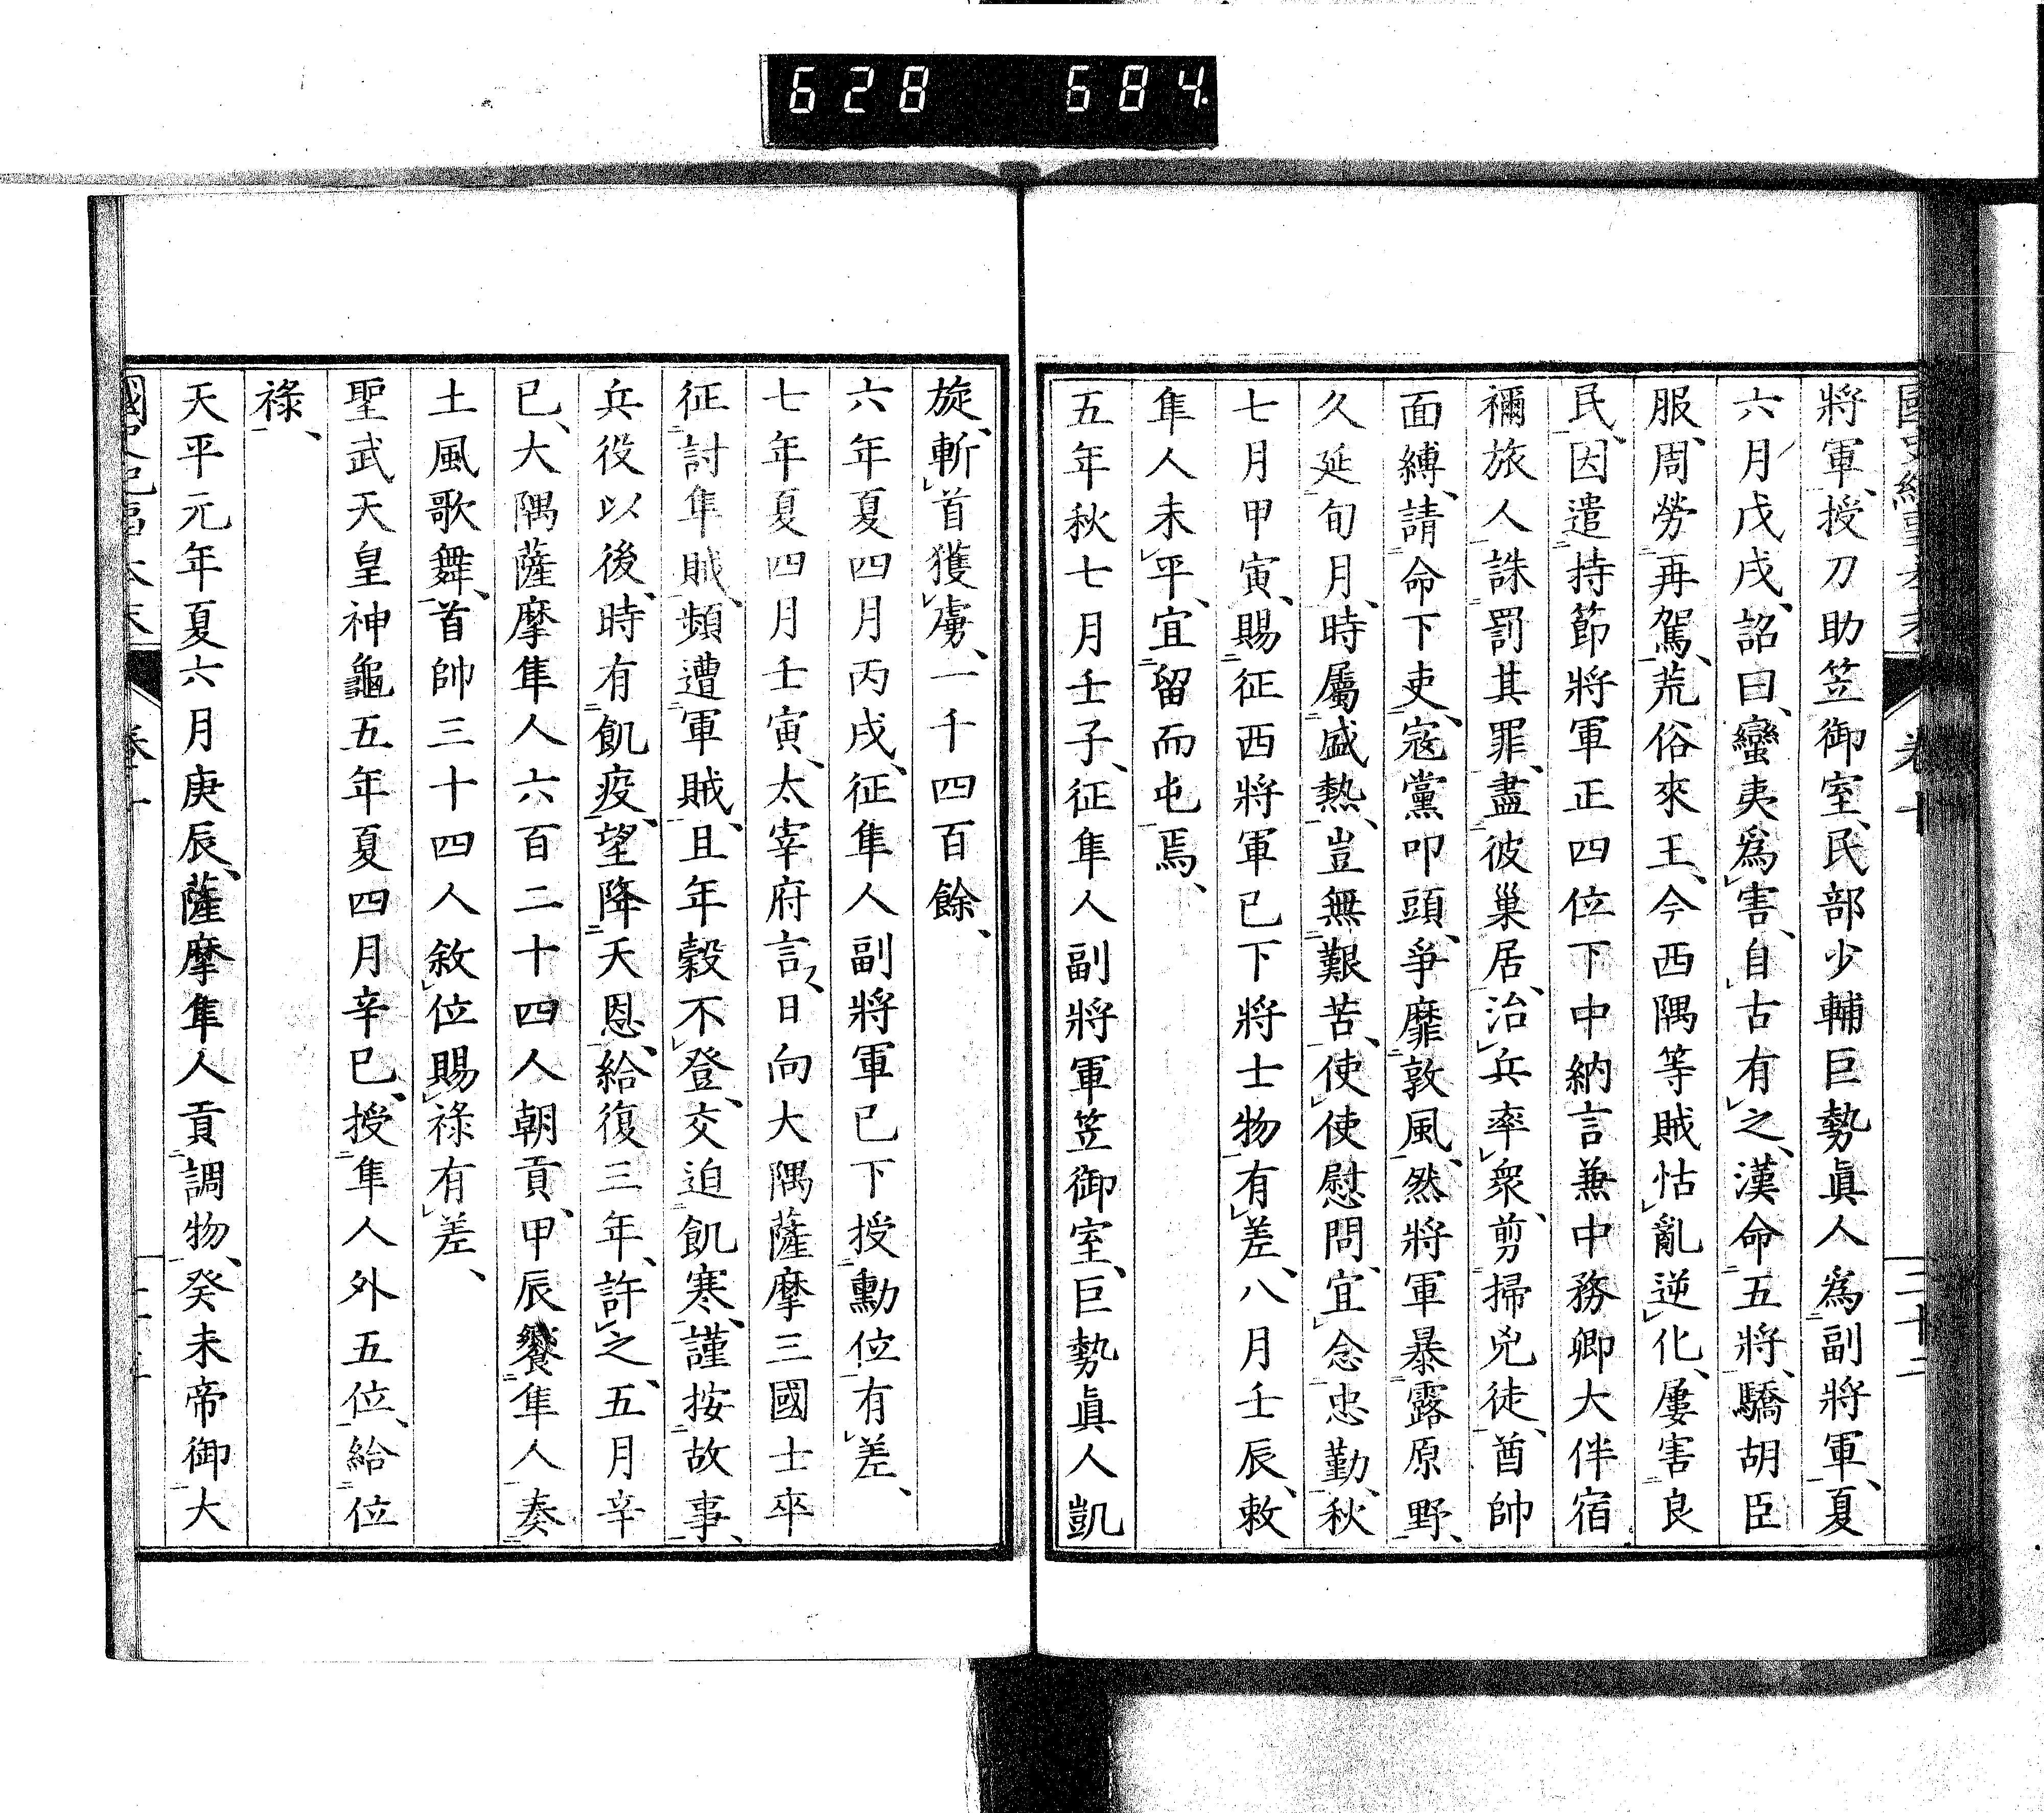 628 684.
將軍、授刀助笠御室、民部少輔巨勢眞人爲副將軍、夏
六月戊戌、詔曰、蠻夷爲害、自古有之、漢命五將、驕胡臣
服、周勞再駕、荒俗來王、今西隅等賊怙亂逆化、屢害良
民、因遣持節將軍正四位下中納言兼中務卿大伴宿
禰旅人、誅罰其罪、盡彼巢居、治兵率衆、剪掃兇徒、酋帥
面縛、請命下吏、寇黨叩頭、爭靡敦風、然將軍暴露原野、
久延旬月、時屬盛熱、豈無艱苦、使使慰問、宜念忠勤、秋
七月甲寅、賜征西將軍已下將士物有差、八月壬辰、敕
隼人未平、宜留而屯焉、
五年秋七月壬子、征隼人副將軍笠御室、巨勢眞人凱
旋、斬首獲虜、一千四百餘、
六年夏四月丙戌、征隼人副將軍已下授勳位有差、
七年夏四月壬寅、太宰府言、日向大隅薩摩三國士卒
征討隼賊、頻遭軍賊、且年穀不登、交迫飢寒、謹按故事、
兵役以後、時有飢疫、望降天恩、給復三年、許之、五月辛
巳、大隅薩摩隼人六百二十四人朝貢、甲辰饗隼人奏
土風歌舞、首帥三十四人敘位賜祿有差、
聖武天皇神龜五年夏四月辛巳、授隼人外五位、給位
祿、
天平元年夏六月庚辰、薩摩隼人貢調物、癸未帝御大